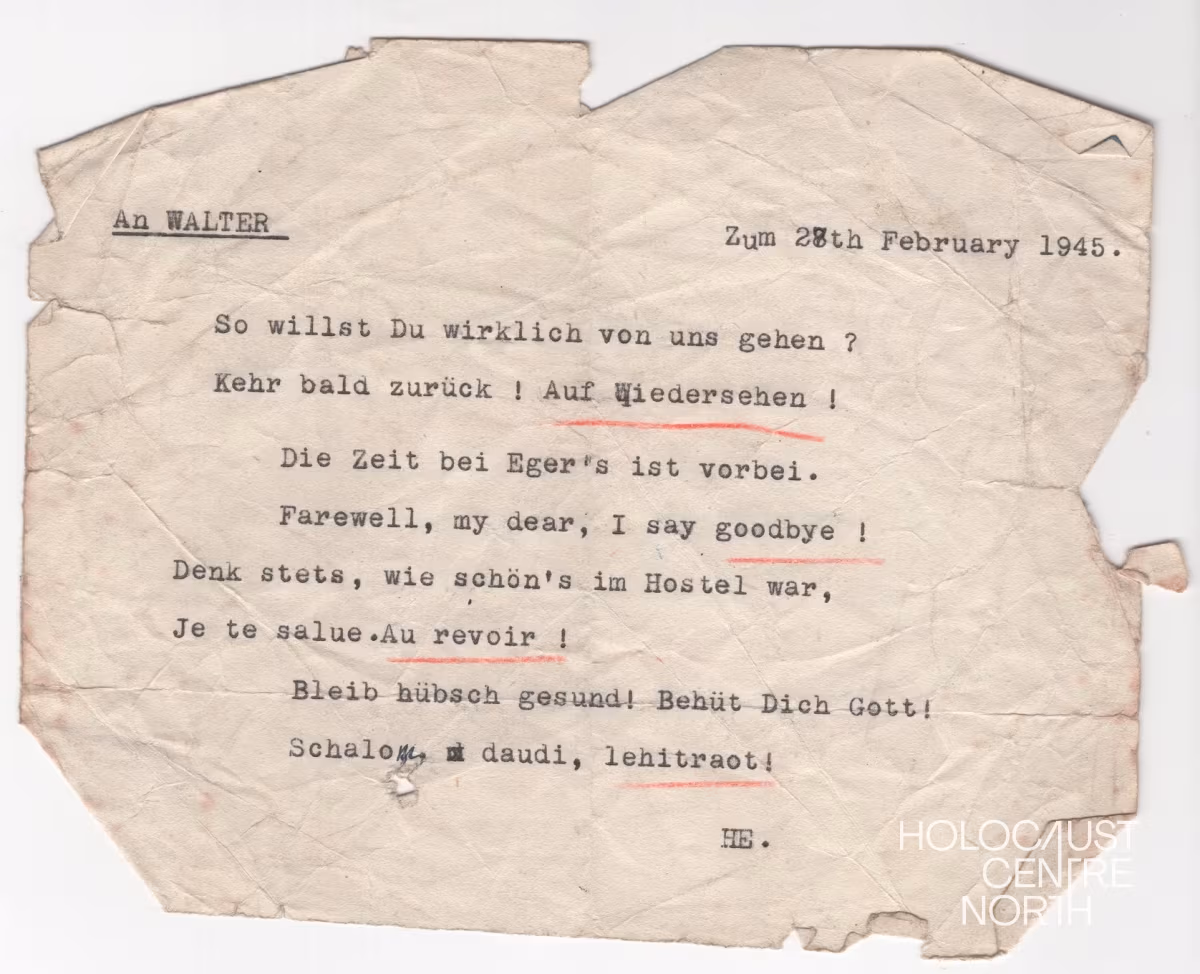 An WALTER
Zum 28th February 1945.
So willst Du wirklich von uns gehen ?
Kehr bald zurück ! Auf Wiedersehen !
Die Zeit bei Eger's ist vorbei.
Farewell, my dear, I say goodbye !
Denk stets, wie schön's im Hostel war,
Je te salue.Au revoir !
Bleib hübsch gesund! Behüt Dich Gott!
Schalom, daudi, lehitraot!
HE.
HOLOCAUST
CENTRE
NORTH